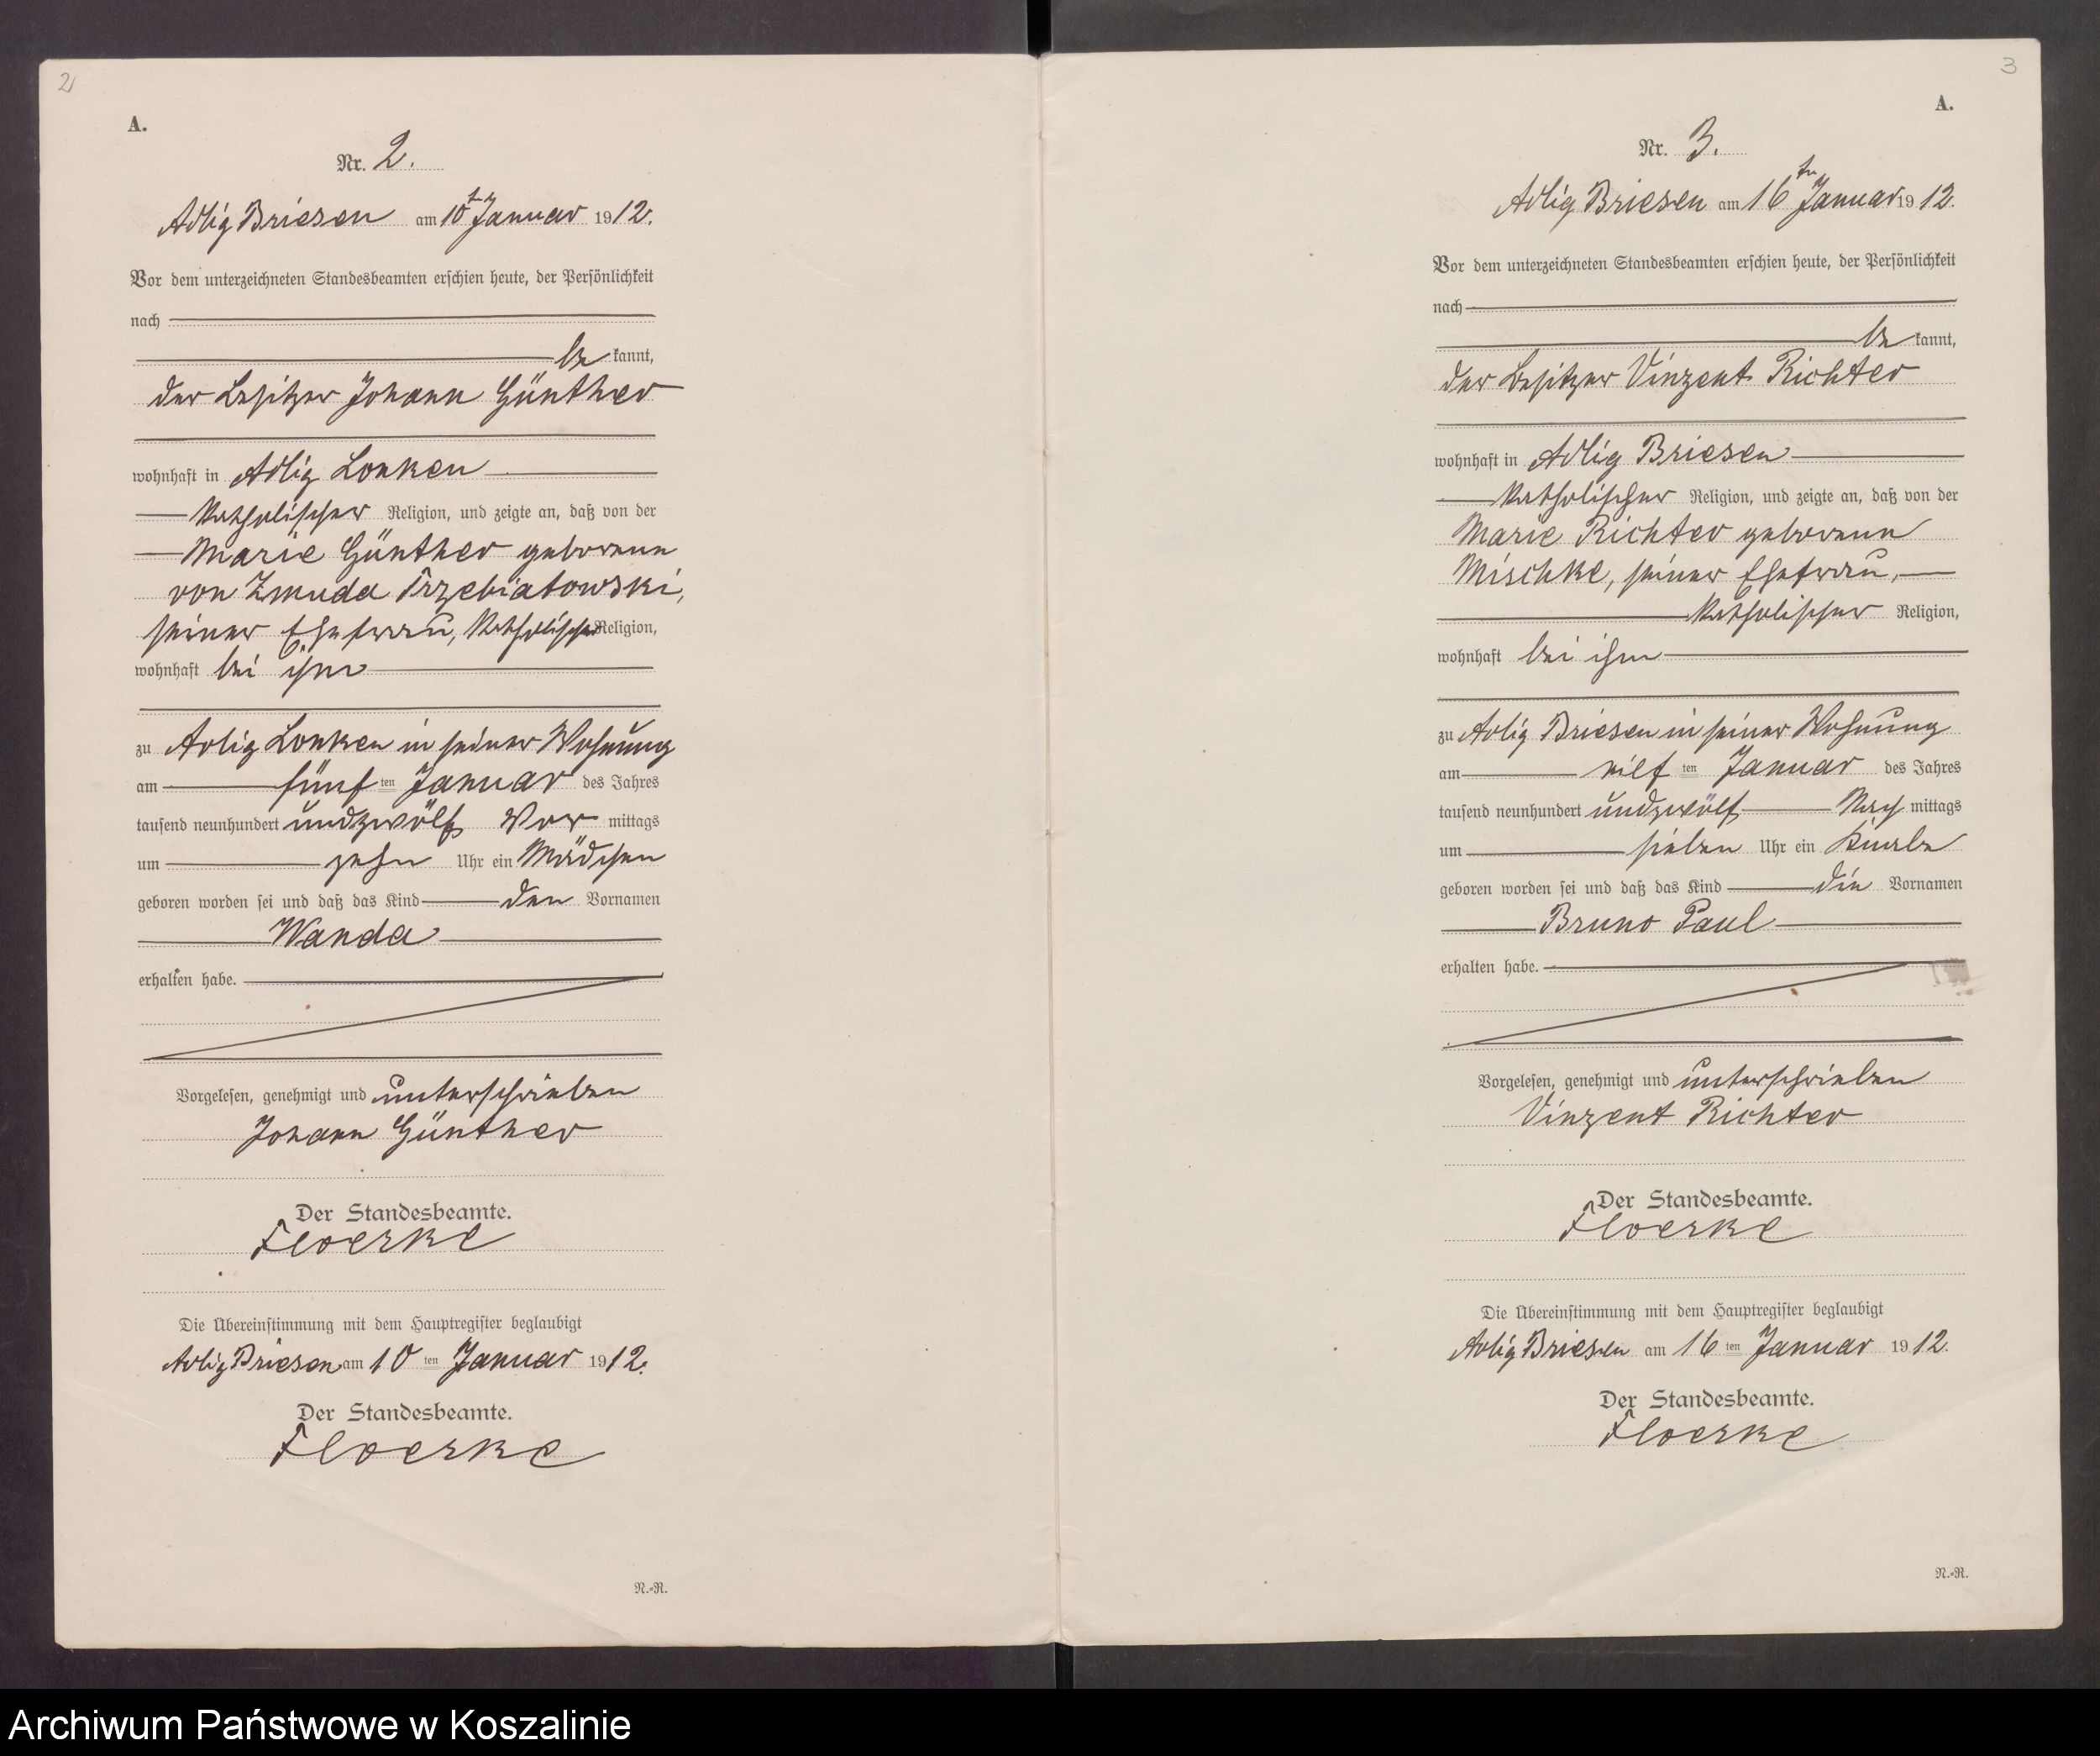 2
A.
Nr. 2.
Adlig Briesen am 10ten Januar 1912.
Vor dem unterzeichneten Standesbeamten erschien heute, der Persönlichkeit
nach
be kannt,
der Besitzer Johann Günther
wohnhaft in Adlig Lonken
katholischer Religion, und zeigte an, daß von der
Marie Günther geborene
von Zmuda Trzebiatowski,
seiner Ehefrau, katholischer Religion,
wohnhaft bei ihm
zu Adlig Lonken in seiner Wohnung
am fünf ten Januar des Jahres
tausend neunhundert undzwölf Vor mittags
um zehn Uhr ein Mädchen
geboren worden sei und daß das Kind den Vornamen
Wanda
erhalten habe.
Vorgelesen, genehmigt und unterschrieben
Johann Günther
Der Standesbeamte.
Floerke
Die Übereinstimmung mit dem Hauptregister beglaubigt
Adlig Briesen am 10 ten Januar 1912.
Der Standesbeamte.
Floerke
N.-R.
3
A.
Nr. 3.
Adlig Briesen am 16ten Januar 1912.
Vor dem unterzeichneten Standesbeamten erschien heute, der Persönlichkeit
nach
be kannt,
der Besitzer Vinzent Richter
wohnhaft in Adlig Briesen
katholischer Religion, und zeigte an, daß von der
Marie Richter geborene
Mischke, seiner Ehefrau,
katholischer Religion,
wohnhaft bei ihm
zu Adlig Briesen in seiner Wohnung
am eilf ten Januar des Jahres
tausend neunhundert undzwölf Nach mittags
um sieben Uhr ein Knabe
geboren worden sei und daß das Kind die Vornamen
Bruno Paul
erhalten habe.
Vorgelesen, genehmigt und unterschrieben
Vinzent Richter
Der Standesbeamte.
Floerke
Die Übereinstimmung mit dem Hauptregister beglaubigt
Adlig Briesen am 16 ten Januar 1912.
Der Standesbeamte.
Floerke
N.-R.
Archiwum Państwowe w Koszalinie